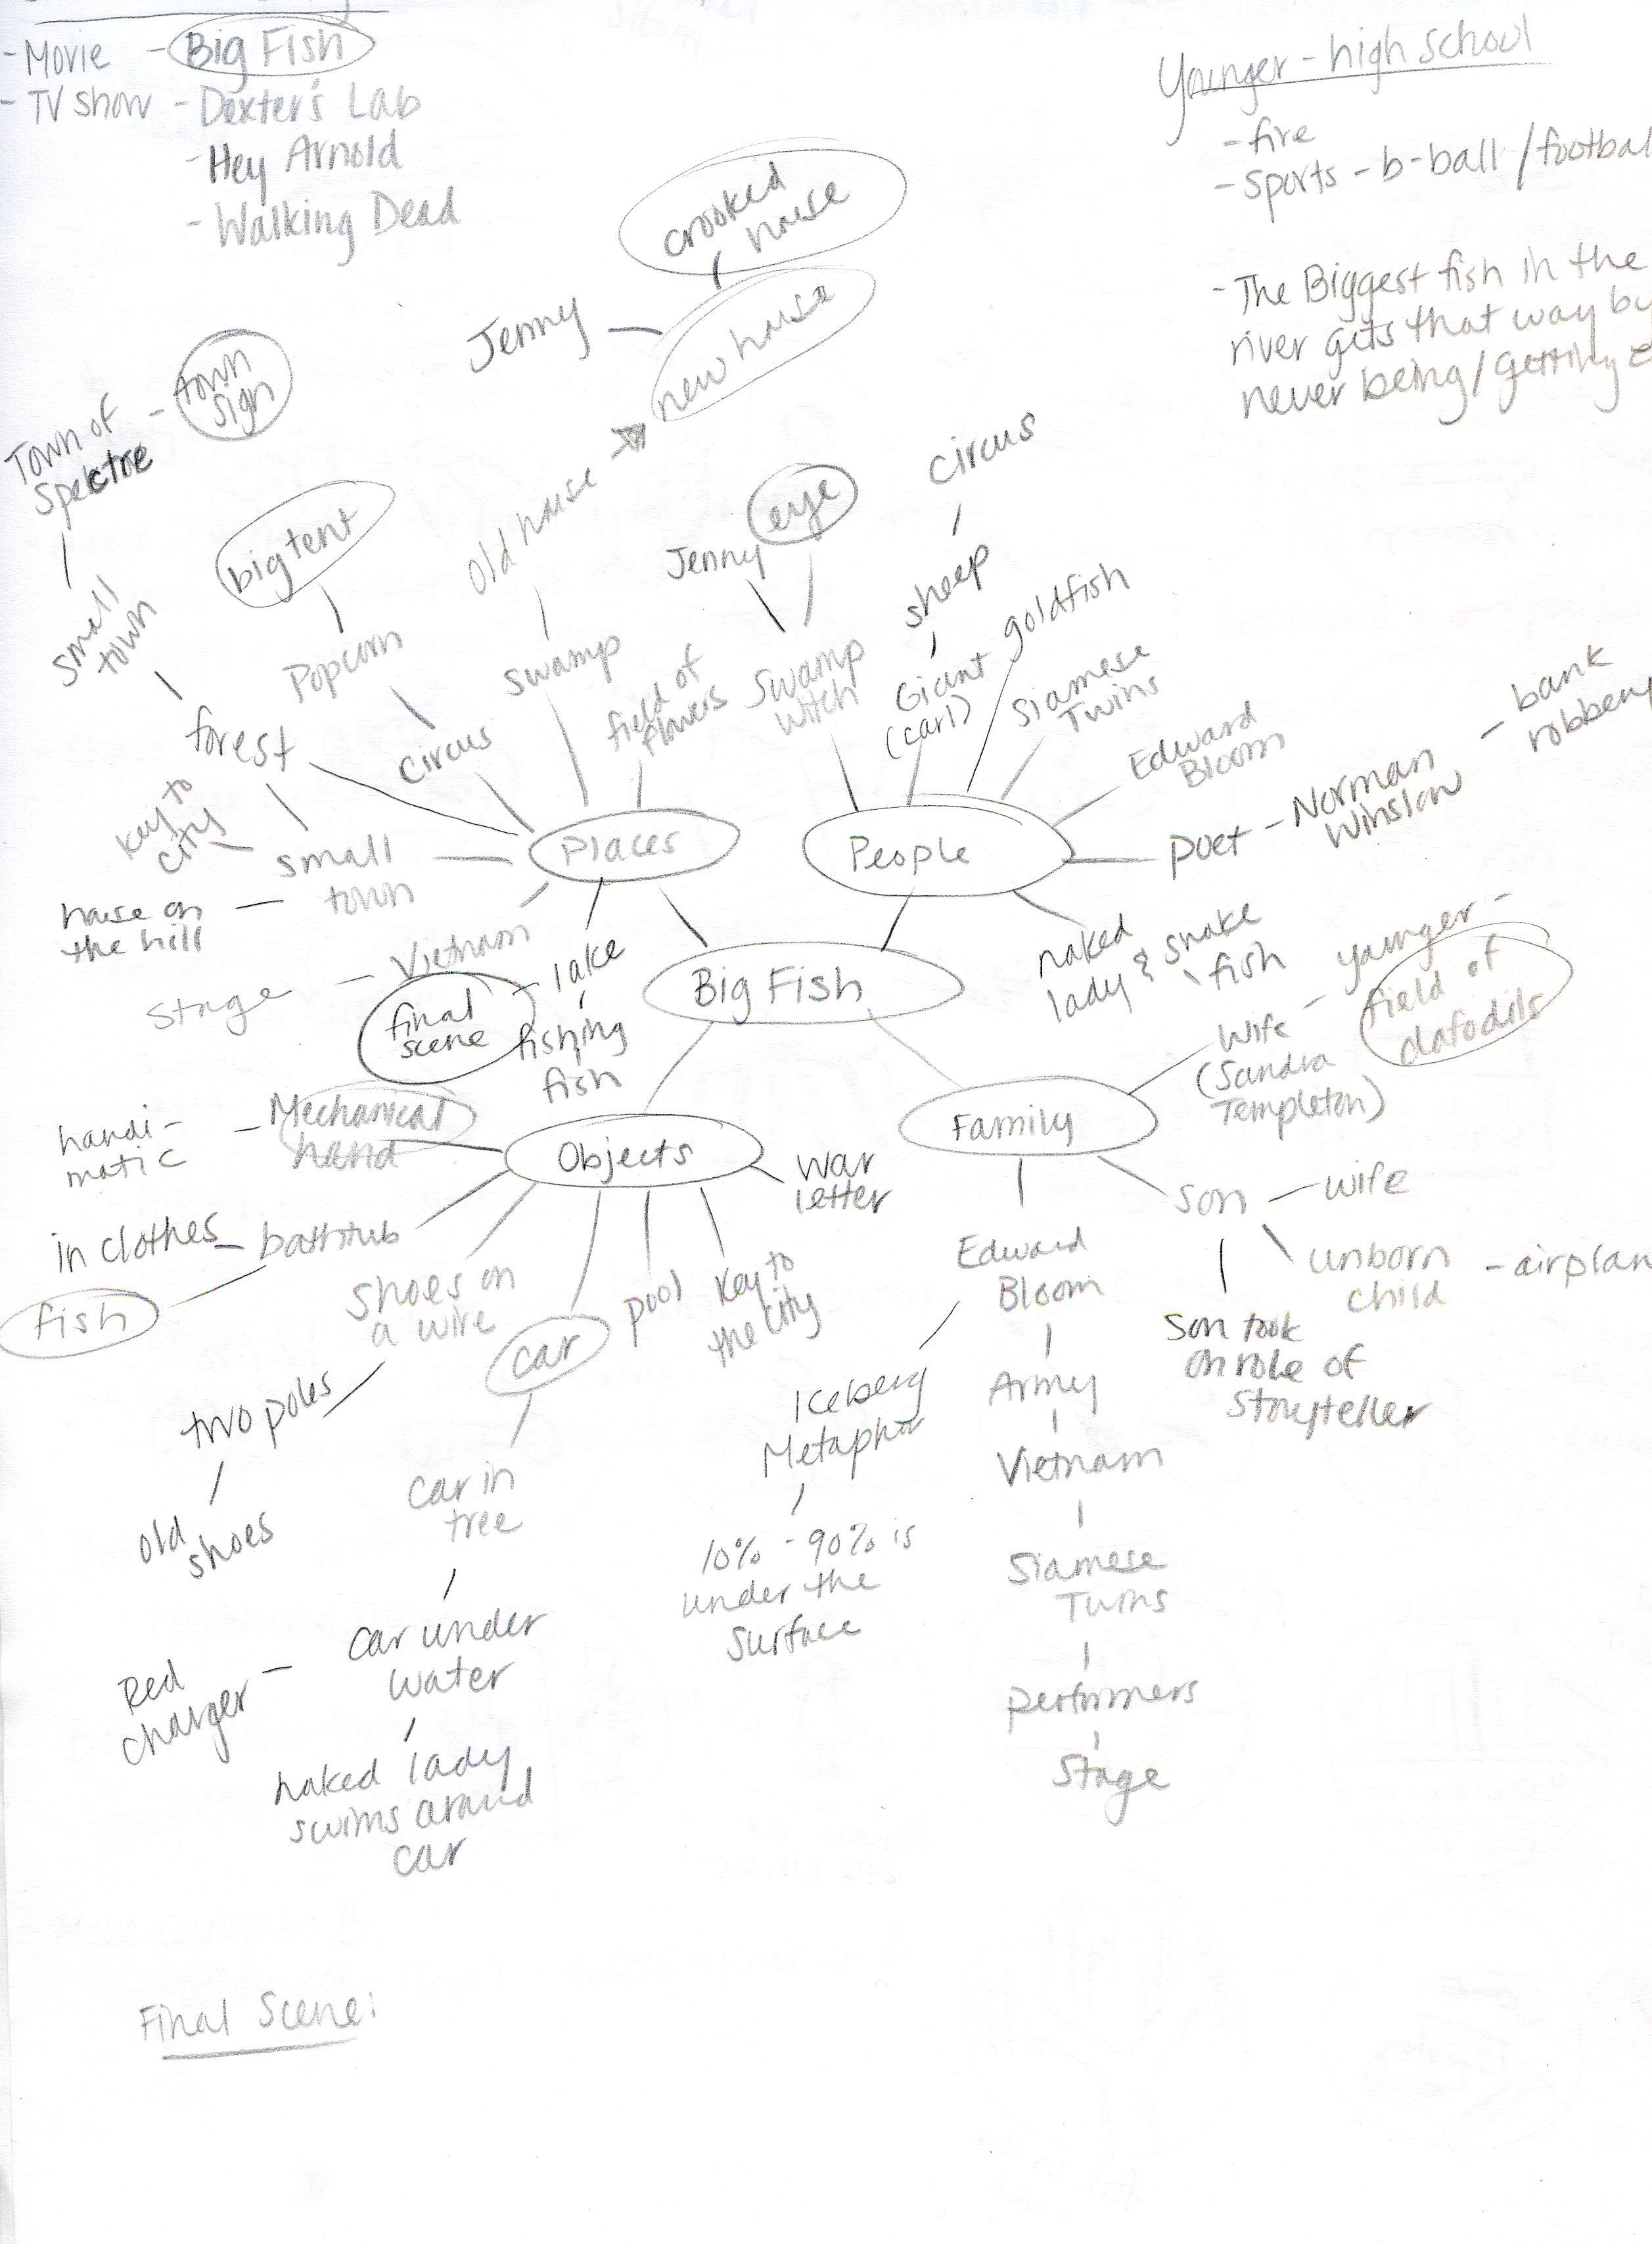 - Movie - Big Fish
- TV show - Dexter's Lab
- Hey Arnold
- Walking Dead
Younger - high school
- fire
- sports - b-ball / footbal
- The Biggest fish in the
river gets that way by
never being / getting
crooked
house
Jenny
new house
town
sign
Town of
Spektre
small
town
big tent
Popcorn
old house
swamp
field of
flowers
eye
Jenny
swamp
witch
circus
sheep
Giant
(carl)
goldfish
Siamese
Twins
Edward
Bloom
poet - Norman
Winslow
- bank
robbery
forest
circus
key to
city
small
town
house on
the hill
Places
People
Vietnam
Stage
final
scene
- lake
fishing
fish
Big Fish
naked
lady & snake
fish
younger -
field of
dafodils
wife
(Sandra
Templeton)
handi-
matic
- Mechanical
hand
Objects
war
letter
Family
in clothes - bathtub
fish
shoes on
a wire
car
pool
key to
the city
two poles
old
shoes
car in
tree
car under
water
Red
charger -
naked lady
swims around
car
Edward
Bloom
Iceberg
Metaphor
10% - 90% is
under the
surface
Army
Vietnam
Siamese
Twins
performers
Stage
son
- wife
unborn
child
- airplan
Son took
on role of
Storyteller
Final Scene: